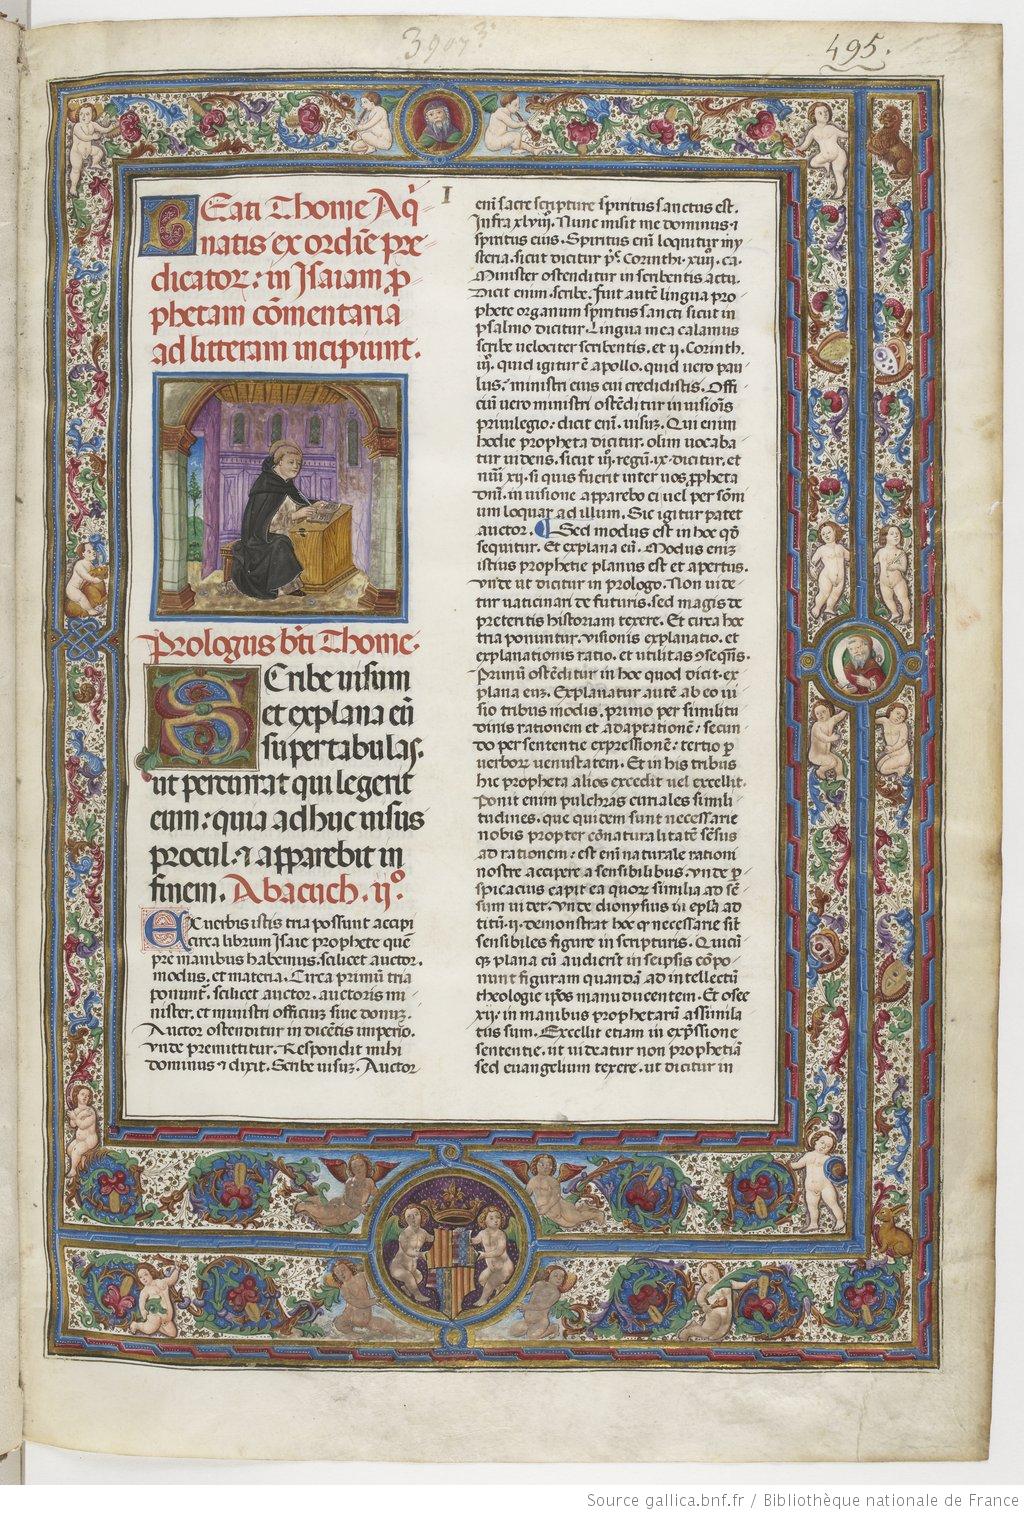 3907 3.
495.
I
Beati Thome Aq̇
natis ex ordīe pre
dicator: in Isaiam ꝓ
phetam cōmentaria
ad litteram incipiunt.
Prologus bt̄i Thome.
Scribe uisum
et explana eū
super tabulas.
ut percurrat qui legerit
eum: quia adhuc uisus
procul. ⁊ apparebit in
finem. Abacuch. ijº
Ex uerbis istis tria possunt accipi
circa librum Isaie prophete quē
pre manibus habemus. scilicet auctor.
modus. et materia. Circa primū tria
ponunt̄. scilicet auctor. auctoris mi-
nister. et ministri officiuꝫ siue donuꝫ.
Auctor ostenditur in dicētis imperio.
vnde premittitur. Respondit mihi
dominus ⁊ dixit. Scribe uisuꝫ. Auctor
eni sacre scripture spiritus sanctus est.
Infra xlviij. Nunc misit me dominus ⁊
spiritus eius. Spiritus eni loquitur my
steria. sicut dicitur pᵉ. Corinth. xiiij. ca.
Minister ostenditur in scribentis actu.
Dicit enim. scribe. fuit autē lingua pro
phete organum spiritus sancti sicut in
psalmo dicitur. Lingua mea calamus
scribe velociter scribentis. et ij. Corinth.
iij. quid igitur ē apollo. quid uero pau
lus: ministri eius cui credidistis. Offi
cium uero ministri ostēditur in uisiōis
priuilegio: dicit eni. uisuꝫ. Qui enim
hodie propheta dicitur. olim uocaba
tur uidens. sicut iij. regū. ix. dicitur. et
nūi xij. si quis fuerit inter uos ꝓpheta
dn̄i. in uisione apparebo ei uel per sōni
um loquar ad illum. Sic igitur patet
auctor. Sed modus est in hoc qd̄
sequitur. Et explana eū. Modus enīꝫ
istius prophetie planus est et apertus.
vnde ut dicitur in prologo. Non uide
tur uaticinari de futuris. sed magis de
preteritis historiam texere. Et circa hoc
tria ponuntur. uisionis explanatio. et
explanationis ratio. et utilitas ꝯseqn̄s.
Primū ostēditur in hoc quod dicit. ex
plana eūꝫ. Explanatur autē ab eo ui
sio tribus modis. primo per similitu
dinis rationem et adaptationē: secun
do per sententie expressionē: tertio ꝑ
uerborꝫ uenustatem. Et in his tribus
hic propheta alios excedit uel excellit.
ponit enim pulchras curiales simili
tudines. que quidem sunt necessarie
nobis propter cōnaturalitatē sēsus
ad rationem: est eni naturale rationi
nostre accipere a sensibilibus. vnde ꝑ
spicacius capit ea quorꝫ similia ad sē
sum uidet. vnde dionysius in epla ad
titū. ij. demonstrat hoc ꝙ necessarie sīt
sensibiles figure in scripturis. Quicū
qꝫ plana eū audierit in seipsis cōpo
nunt figuram quandā ad intellectū
theologie ipōs manuducentem. Et osee
xij. in manibus prophetarū assimila
tus sum. Excellit etiam in exp̄ssione
sententie. ut uideatur non prophetiā
sed euangelium texere. ut dicitur in
Source gallica.bnf.fr / Bibliothèque nationale de France